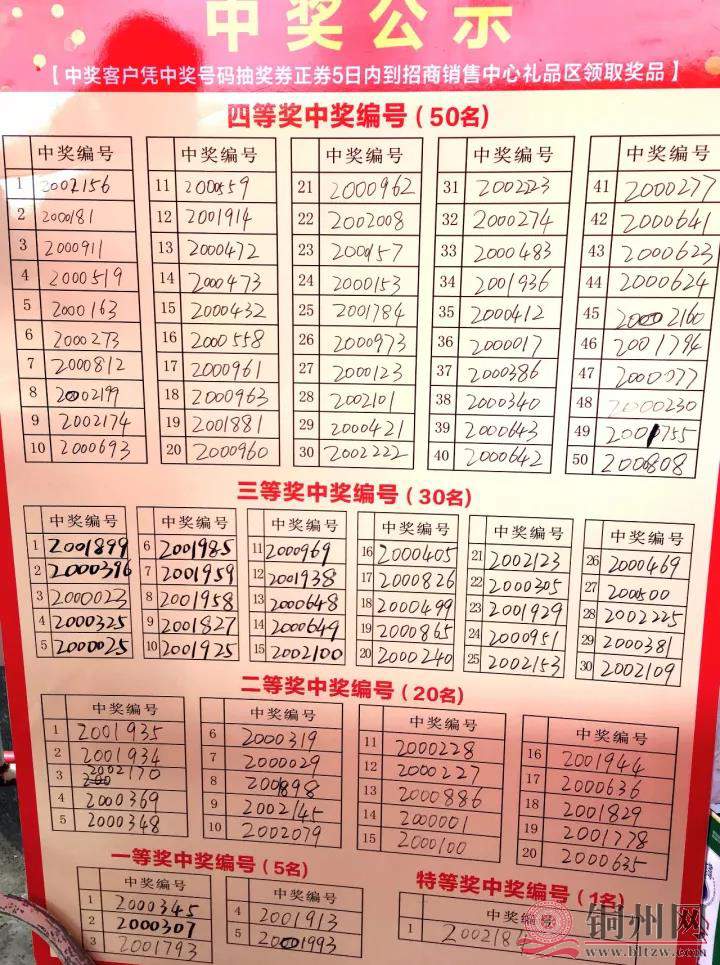 中奖公示
【中奖客户凭中奖号码抽奖券正券5日内到招商销售中心礼品区领取奖品】
四等奖中奖编号(50名)
中奖编号 中奖编号 中奖编号 中奖编号 中奖编号
1 2002156 11 2000559 21 2000962 31 2002223 41 2000277
2 2000181 12 2001914 22 2002008 32 2000274 42 2000641
3 2000911 13 2000472 23 2000157 33 2000483 43 2000623
4 2000519 14 2000473 24 2000153 34 2001936 44 2000624
5 2000163 15 2000432 25 2001784 35 2000412 45 2002160
6 2000273 16 2000558 26 2000973 36 2000017 46 2001794
7 2000812 17 2000961 27 2000123 37 2000386 47 2000077
8 2002199 18 2000963 28 2002101 38 2000340 48 2000230
9 2002174 19 2001881 29 2000421 39 2000643 49 2001755
10 2000693 20 2000960 30 2002222 40 2000642 50 2000808
三等奖中奖编号(30名)
中奖编号 中奖编号 中奖编号 中奖编号 中奖编号 中奖编号
1 2001899 6 2001985 11 2000969 16 2000405 21 2002123 26 2000469
2 2000396 7 2001959 12 2001938 17 2000826 22 2000305 27 2000500
3 2000023 8 2001958 13 2000648 18 2000499 23 2001929 28 2002225
4 2000325 9 2001827 14 2000649 19 2000865 24 2000951 29 2000381
5 2000025 10 2001925 15 2002100 20 2000240 25 2002153 30 2002109
二等奖中奖编号(20名)
中奖编号 中奖编号 中奖编号 中奖编号
1 2001935 6 2000319 11 2000228 16 2001944
2 2001934 7 2000029 12 2000227 17 2000636
3 2002170 8 2001898 13 2000886 18 2001829
4 2000369 9 2002145 14 2000001 19 2001778
5 2000348 10 2002079 15 2000100 20 2000635
一等奖中奖编号(5名) 特等奖中奖编号(1名)
中奖编号 中奖编号 中奖编号
1 2000345 4 2001913 1
2 2000307 5 2001993
3 2001793
铜州网
www.hltzw.com